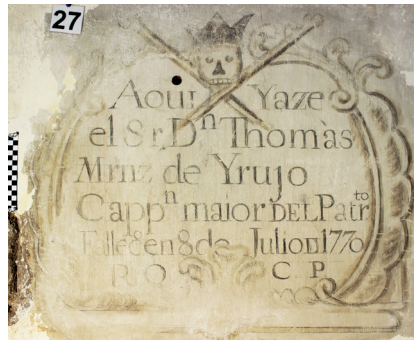 27
Aqui Yaze
el Sr. Dn Thomàs
Mrnz de Yrujo
Cappn maior DEL Patrto
Falleció en 8 de Julio D 1770
R O
C P